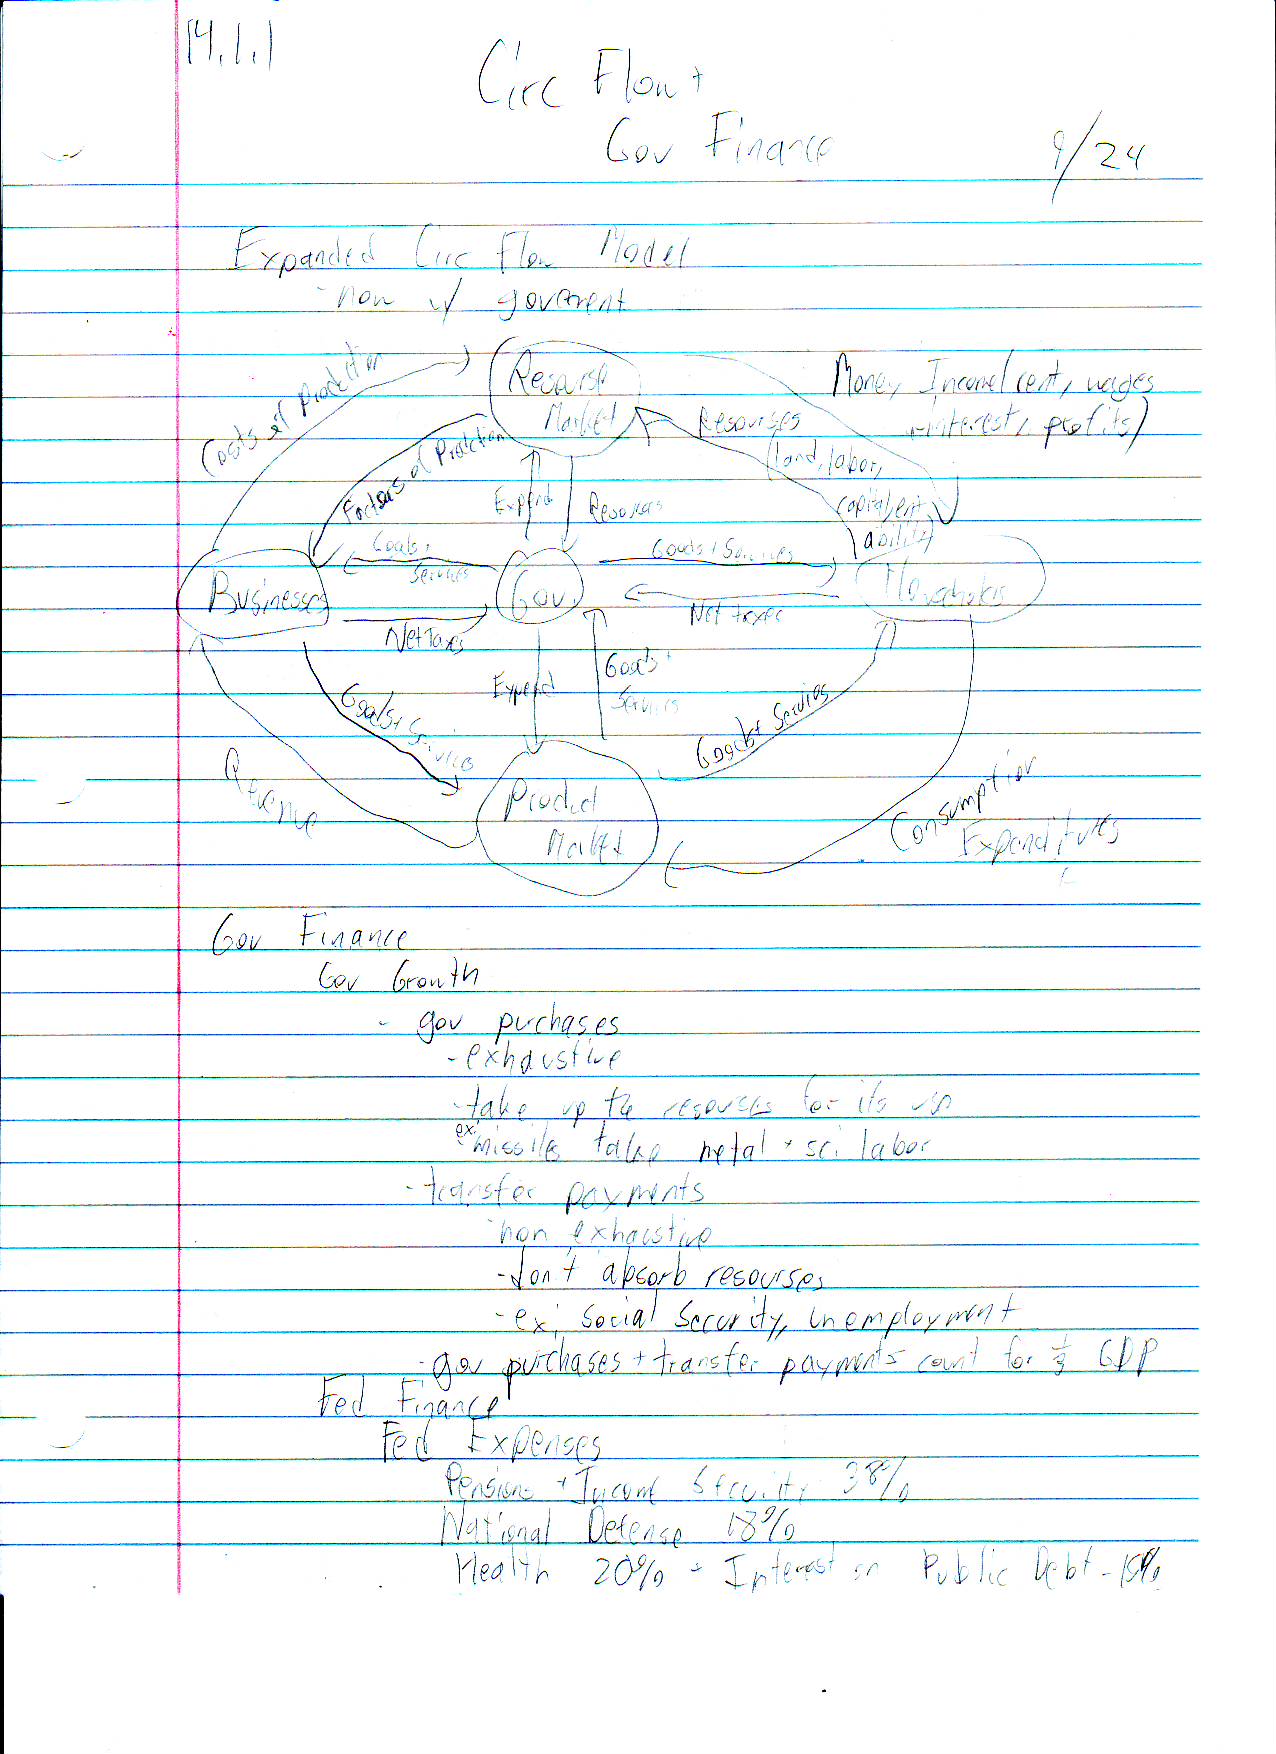 14.1.1
Circ Flow +
Gov Finance
9/24
Expanded Circ Flow Model
- now w/ goverent
Costs of Prodction
Resourse
Market
Money Income (rent, wages
+ interest, profits)
Resourses
(land, labor,
capital, ent
ability)
Factors of Prodction
Expend
Resources
Goods +
Services
Goods + Services
Businesses
Gov.
Households
Net Taxes
Net taxes
Expend
Goods +
Services
Goods + Services
Goods + Services
Revenue
Product
Market
Consumption
Expenditures
Gov Finance
Gov Growth
- gov purchases
- exhaustive
- take up the resources for its use
ex: missiles take metal + sci labor
- transfer payments
- non exhaustive
- don't absorb resourses
- ex: social security, unemployment
- gov purchases + transfer payments count for 1/3 GDP
Fed Finance
Fed Expenses
Pensions + Income Security 38%
National Defense 18%
Health 20% - Interest on Public Debt - 15%